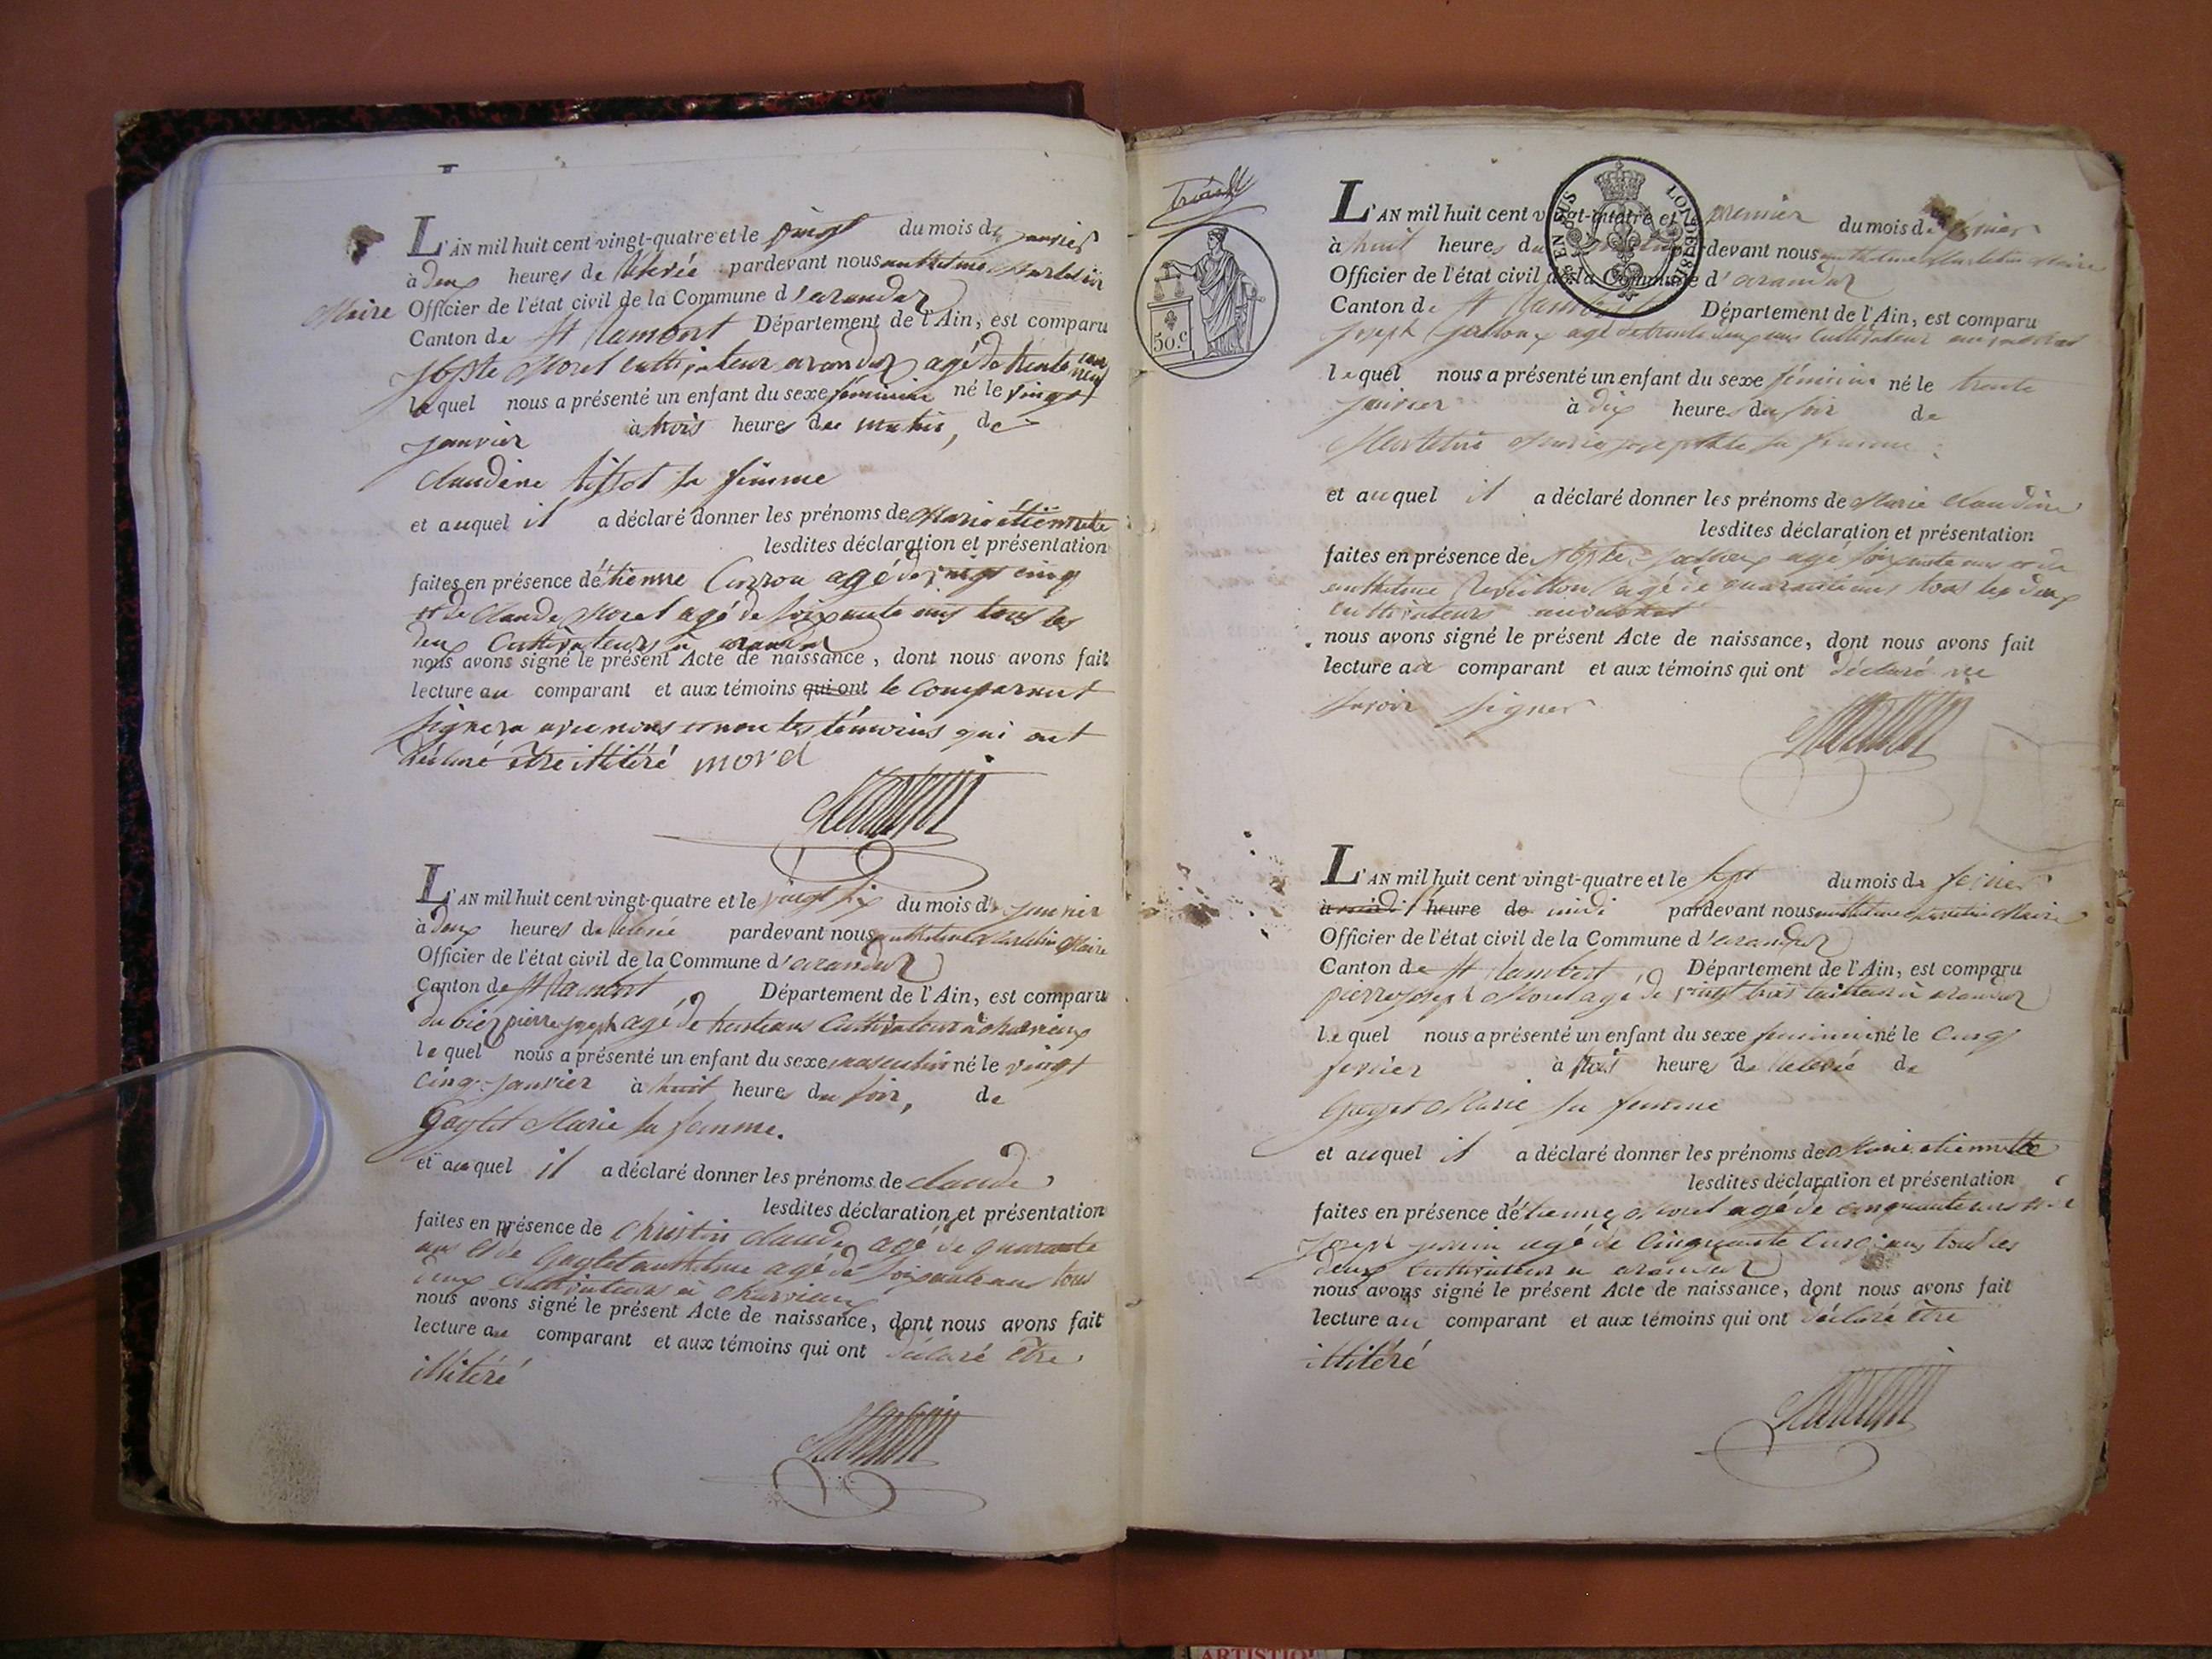 L'AN mil huit cent vingt-quatre et le vingt du mois de janvier
à deux heures de relevée pardevant nous anthelme Martelin
Maire Officier de l'état civil de la Commune d'arandas
Canton de St Rambert Département de l'Ain, est comparu
Morel cultivateur arandas agé de trente neuf
lequel nous a présenté un enfant du sexe féminin né le vingt
janvier à trois heures du matin, de
Claudine tissot sa femme
et auquel il a déclaré donner les prénoms de Marie étiennette
lesdites déclaration et présentation
faites en présence d'étienne agé de vingt cinq
et de Claude Morel agé de soixante ans tous les
deux Cultivateurs à arandas
nous avons signé le présent Acte de naissance, dont nous avons fait
lecture au comparant et aux témoins qui ont le comparant
signera avec nous et non les témoins qui ont
déclaré être illitéré morel
L'AN mil huit cent vingt-quatre et le vingt six du mois de janvier
à deux heures de relevée pardevant nous anthelme Martelin Maire
Officier de l'état civil de la Commune d'arandas
Canton de St Rambert Département de l'Ain, est comparu
du biez pierre joseph agé de trente ans Cultivateur à
lequel nous a présenté un enfant du sexe masculin né le vingt
cinq janvier à huit heures du soir, de
Marie sa femme.
et auquel il a déclaré donner les prénoms de claude
lesdites déclaration et présentation
faites en présence de Christin claude agé de quarante
ans et de anthelme agé de soixante ans tous
deux Cultivateurs à
nous avons signé le présent Acte de naissance, dont nous avons fait
lecture au comparant et aux témoins qui ont déclaré être
illitéré
50.c
EN SUS LOI DE 1816
L'AN mil huit cent vingt-quatre et le premier du mois de fevrier
à huit heures du pardevant nous anthelme Martelin Maire
Officier de l'état civil de la Commune d'arandas
Canton de St Rambert Département de l'Ain, est comparu
joseph agé de trente deux ans Cultivateur
lequel nous a présenté un enfant du sexe féminin né le trente
janvier à dix heures du soir de
Martelin Marie josephte sa femme
et auquel il a déclaré donner les prénoms de Marie Claudine
lesdites déclaration et présentation
faites en présence de agé soixante ans et de
anthelme agé de quarante ans tous les deux
cultivateurs
nous avons signé le présent Acte de naissance, dont nous avons fait
lecture au comparant et aux témoins qui ont déclaré ne
savoir signer
L'AN mil huit cent vingt-quatre et le sept du mois de fevrier
à midi heure de midi pardevant nous anthelme Martelin Maire
Officier de l'état civil de la Commune d'arandas
Canton de St Rambert Département de l'Ain, est comparu
pierre joseph Morel agé de vingt trois à arandas
lequel nous a présenté un enfant du sexe feminin né le cinq
fevrier à trois heures de relevée de
Marie sa femme
et auquel il a déclaré donner les prénoms de Marie etiennette
lesdites déclaration et présentation
faites en présence d'étienne Morel agé de cinquante ans et de
joseph agé de cinquante cinq ans tous les
deux Cultivateur à arandas
nous avons signé le présent Acte de naissance, dont nous avons fait
lecture au comparant et aux témoins qui ont déclaré être
illitéré